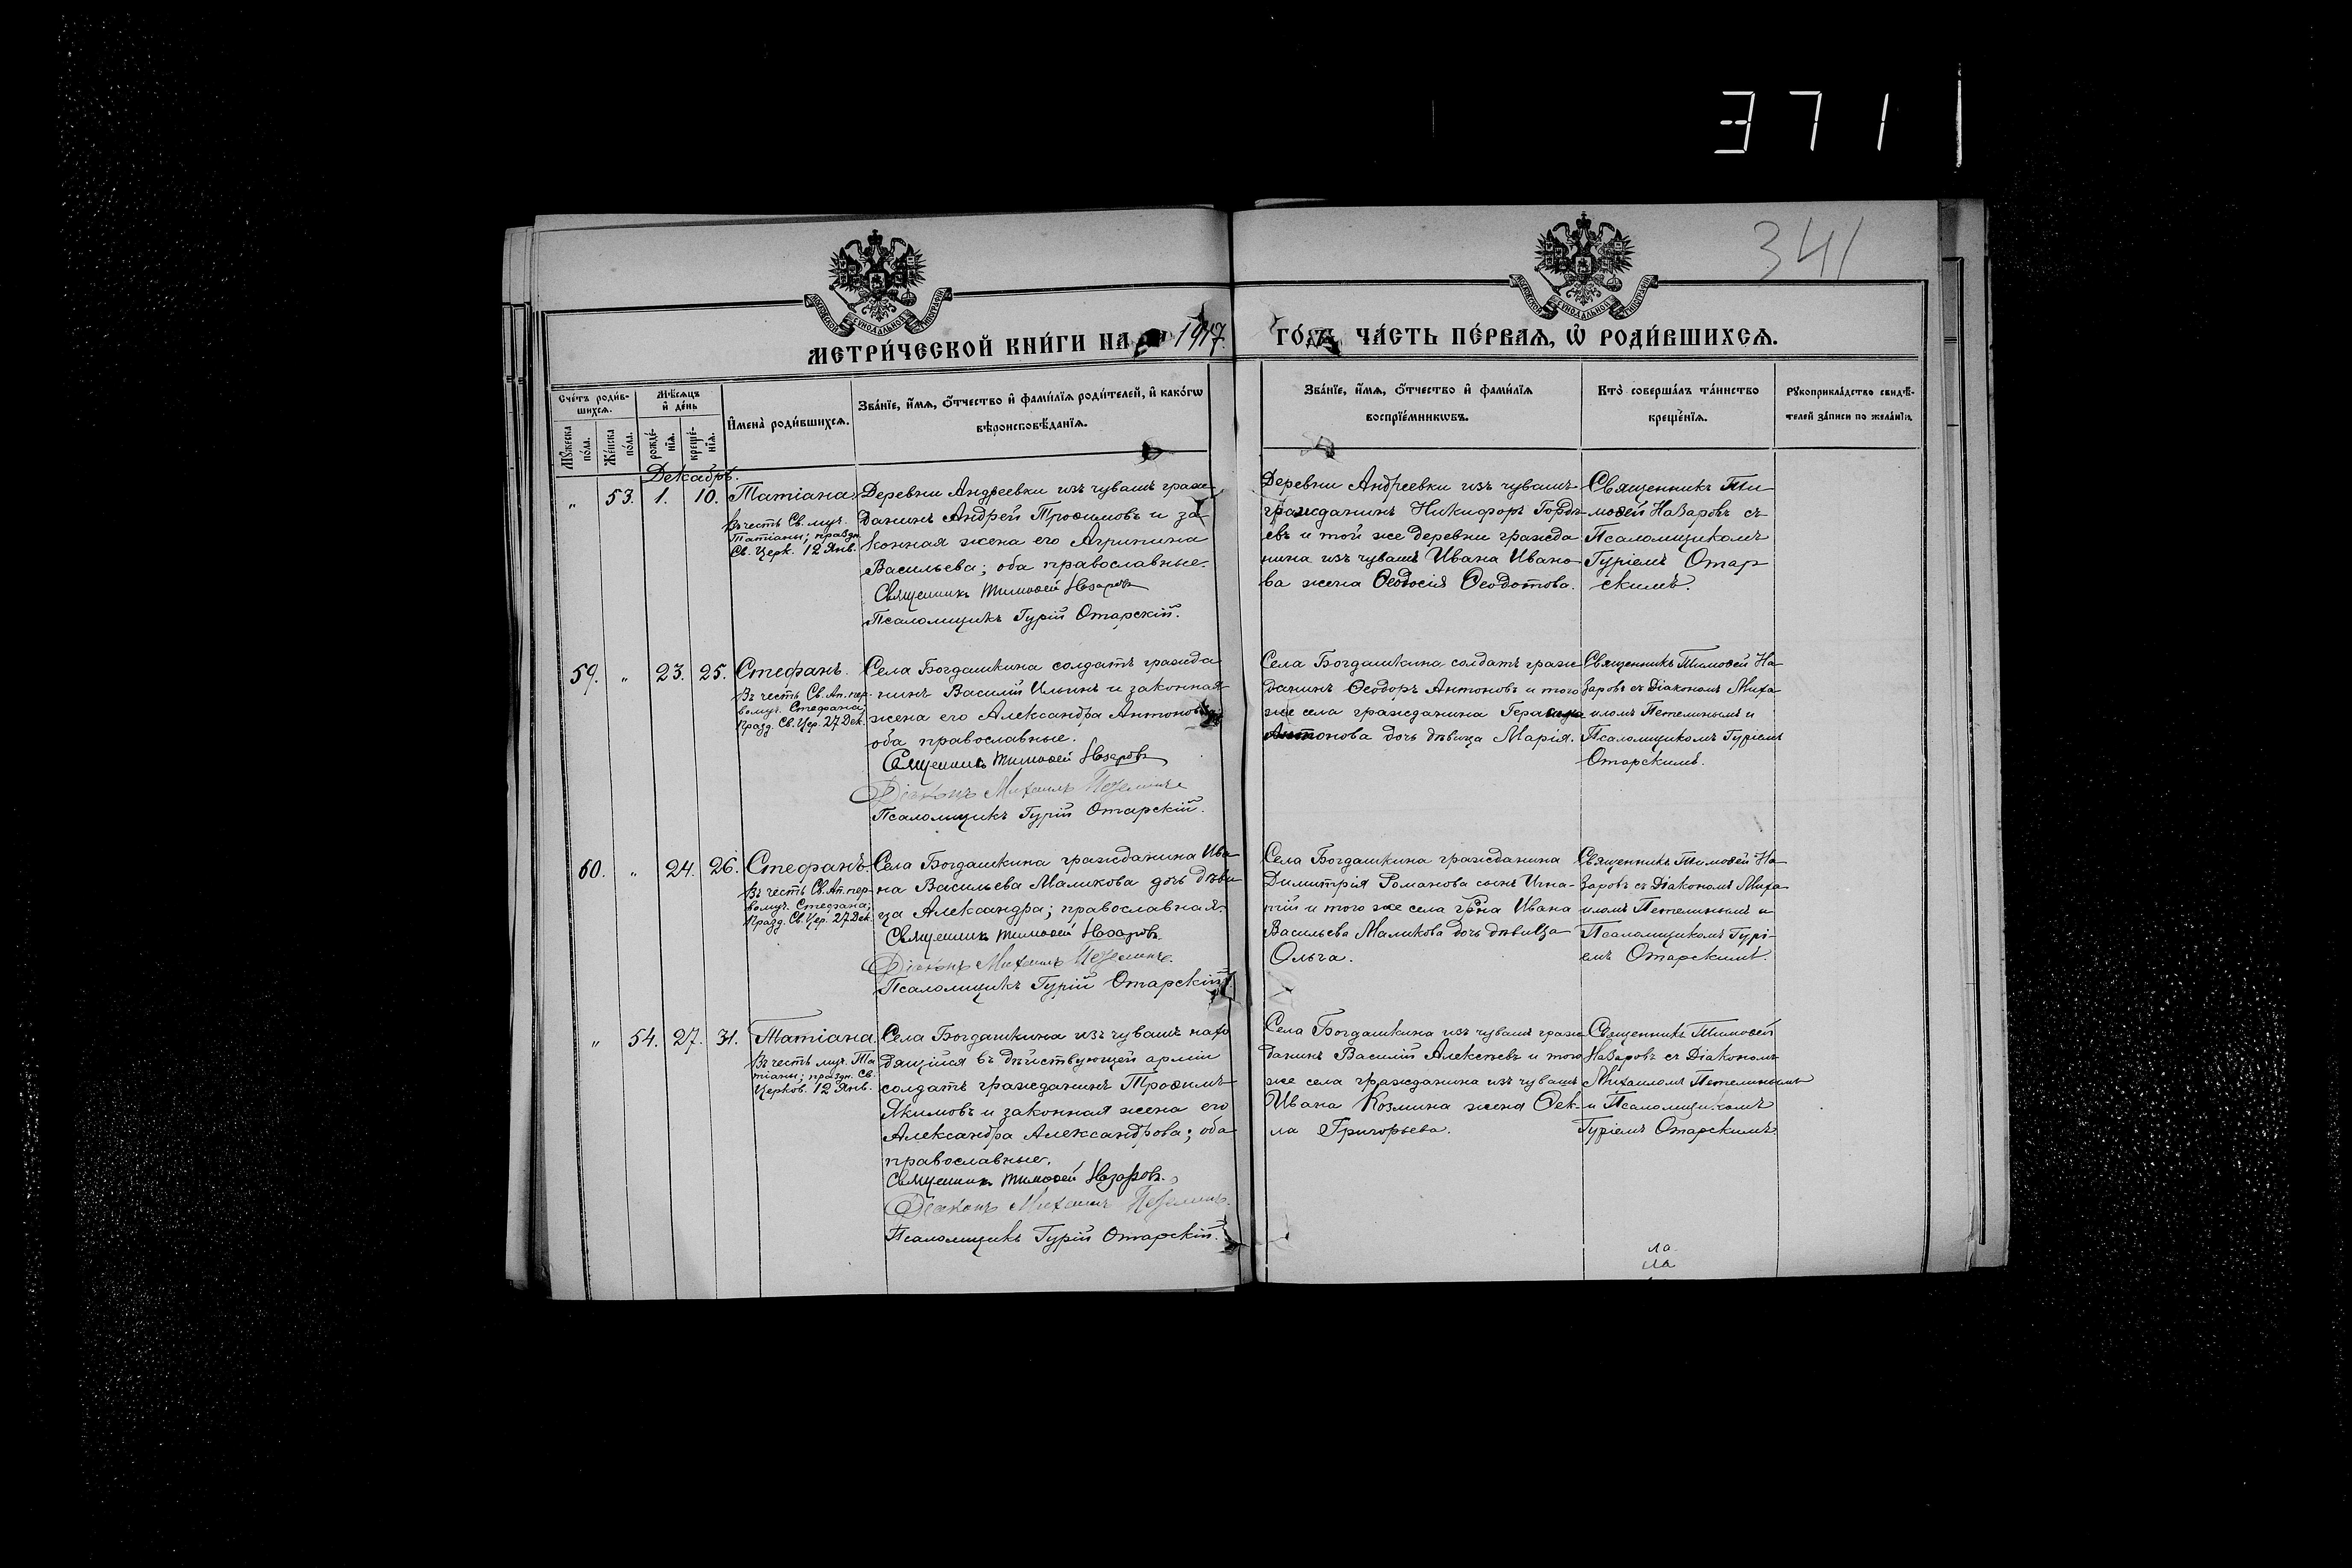 3711
341
МОСКОВСКОЙ СѴНОДАЛЬНОЙ ТИПОГРАФІИ
МОСКОВСКОЙ СѴНОДАЛЬНОЙ ТИПОГРАФІИ
МЕТРИ́ЧЕСКОЙ КНИ́ГИ НА 1917.
ГО́ДЪ ЧА́СТЬ ПЕ́РВАѦ, Ѡ҆ РОДИ́ВШИХСѦ.
Сче́тъ роди́в-
шихсѧ.
Мꙋ́жеска по́ла.
Же́нска по́ла.
Мѣ́сѧцъ
и҆ де́нь
рожде́-
нїѧ.
креще́-
нїѧ.
И҆мена̀ роди́вшихсѧ.
Зва́нїе, и҆́мѧ, ѻ҆́тчество и҆ фами́лїѧ роди́телей, и҆ како́гѡ
вѣроисповѣ́данїѧ.
Зва́нїе, и҆́мѧ, ѻ҆́тчество и҆ фами́лїѧ
воспрїе́мникѡвъ.
Кто̀ соверша́лъ та́инство
креще́нїѧ.
Рꙋкоприкла́дство свидѣ́-
телей за́писи по жела́нїю.
Декабрь.
" 53. 1. 10. Татіана
Въ честь Св. муч.
Татіаны; праздн.
Св. Церк. 12 Янв.
Деревни Андреевки изъ чувашъ граж-
данинъ Андрей Трофимовъ и за-
конная жена его Агрипина
Васильева; оба православные.
Священникъ Тимоѳей Назаровъ
Псаломщикъ Гурій Отарскій.
Деревни Андреевки изъ чувашъ
гражданинъ Никифоръ Гордѣ-
евъ и той же деревни гражда
нина изъ чувашъ Ивана Ивано-
ва жена Ѳеодосія Ѳеодотова.
Священникъ Ти-
моѳей Назаровъ съ
Псаломщикомъ
Гуріемъ Отар
скимъ.
59. " 23. 25. Стефанъ.
Въ честь Св. Ап. пер-
вомуч. Стефана;
Празд. Св. Цер. 27 Дек.
Села Богдашкина солдатъ гражда
нинъ Василій Ильинъ и законная
жена его Александра Антонова;
оба православные.
Священникъ Тимоѳей Назаровъ
Діаконъ Михаилъ Петелинъ
Псаломщикъ Гурій Отарскій.
Села Богдашкина солдатъ граж-
данинъ Ѳеодоръ Антоновъ и того
же села гражданина Герасима
Антонова дочь дѣвица Марія.
Священникъ Тимоѳей На-
заровъ съ Діакономъ Миха-
иломъ Петелинымъ и
Псаломщикомъ Гуріемъ
Отарскимъ.
60. " 24. 26. Стефанъ.
Въ честь Св. Ап. пер-
вомуч. Стефана;
Празд. Св. Цер. 27 Дек.
Села Богдашкина гражданина Ива
на Васильева Маликова дочь дѣви
ца Александра; православная.
Священникъ Тимоѳей Назаровъ.
Діаконъ Михаилъ Петелинъ.
Псаломщикъ Гурій Отарскій
Села Богдашкина гражданина
Димитрія Романова сынъ Игна-
тій и того же села гр-на Ивана
Васильева Маликова дочь дѣвица
Ольга.
Священникъ Тимоѳей На-
заровъ съ Діакономъ Миха-
иломъ Петелинымъ и
Псаломщикомъ Гурі-
емъ Отарскимъ.
" 54. 27. 31. Татіана.
Въ честь муч. Та
тіаны; праздн. Св.
Церков. 12 Янв.
Села Богдашкина изъ чувашъ нахо
дящійся въ дѣйствующей арміи
солдатъ гражданинъ Трофимъ
Якимовъ и законная жена его
Александра Александрова; оба
православные.
Священникъ Тимоѳей Назаровъ.
Діаконъ Михаилъ Петелинъ.
Псаломщикъ Гурій Отарскій.
Села Богдашкина изъ чувашъ граж-
данинъ Василій Алексѣевъ и того
же села гражданина изъ чувашъ
Ивана Козмина жена Ѳек-
ла Григорьева.
Священникъ Тимоѳей
Назаровъ съ Діакономъ
Михаиломъ Петелинымъ
и Псаломщикомъ
Гуріемъ Отарскимъ.
ла
ла